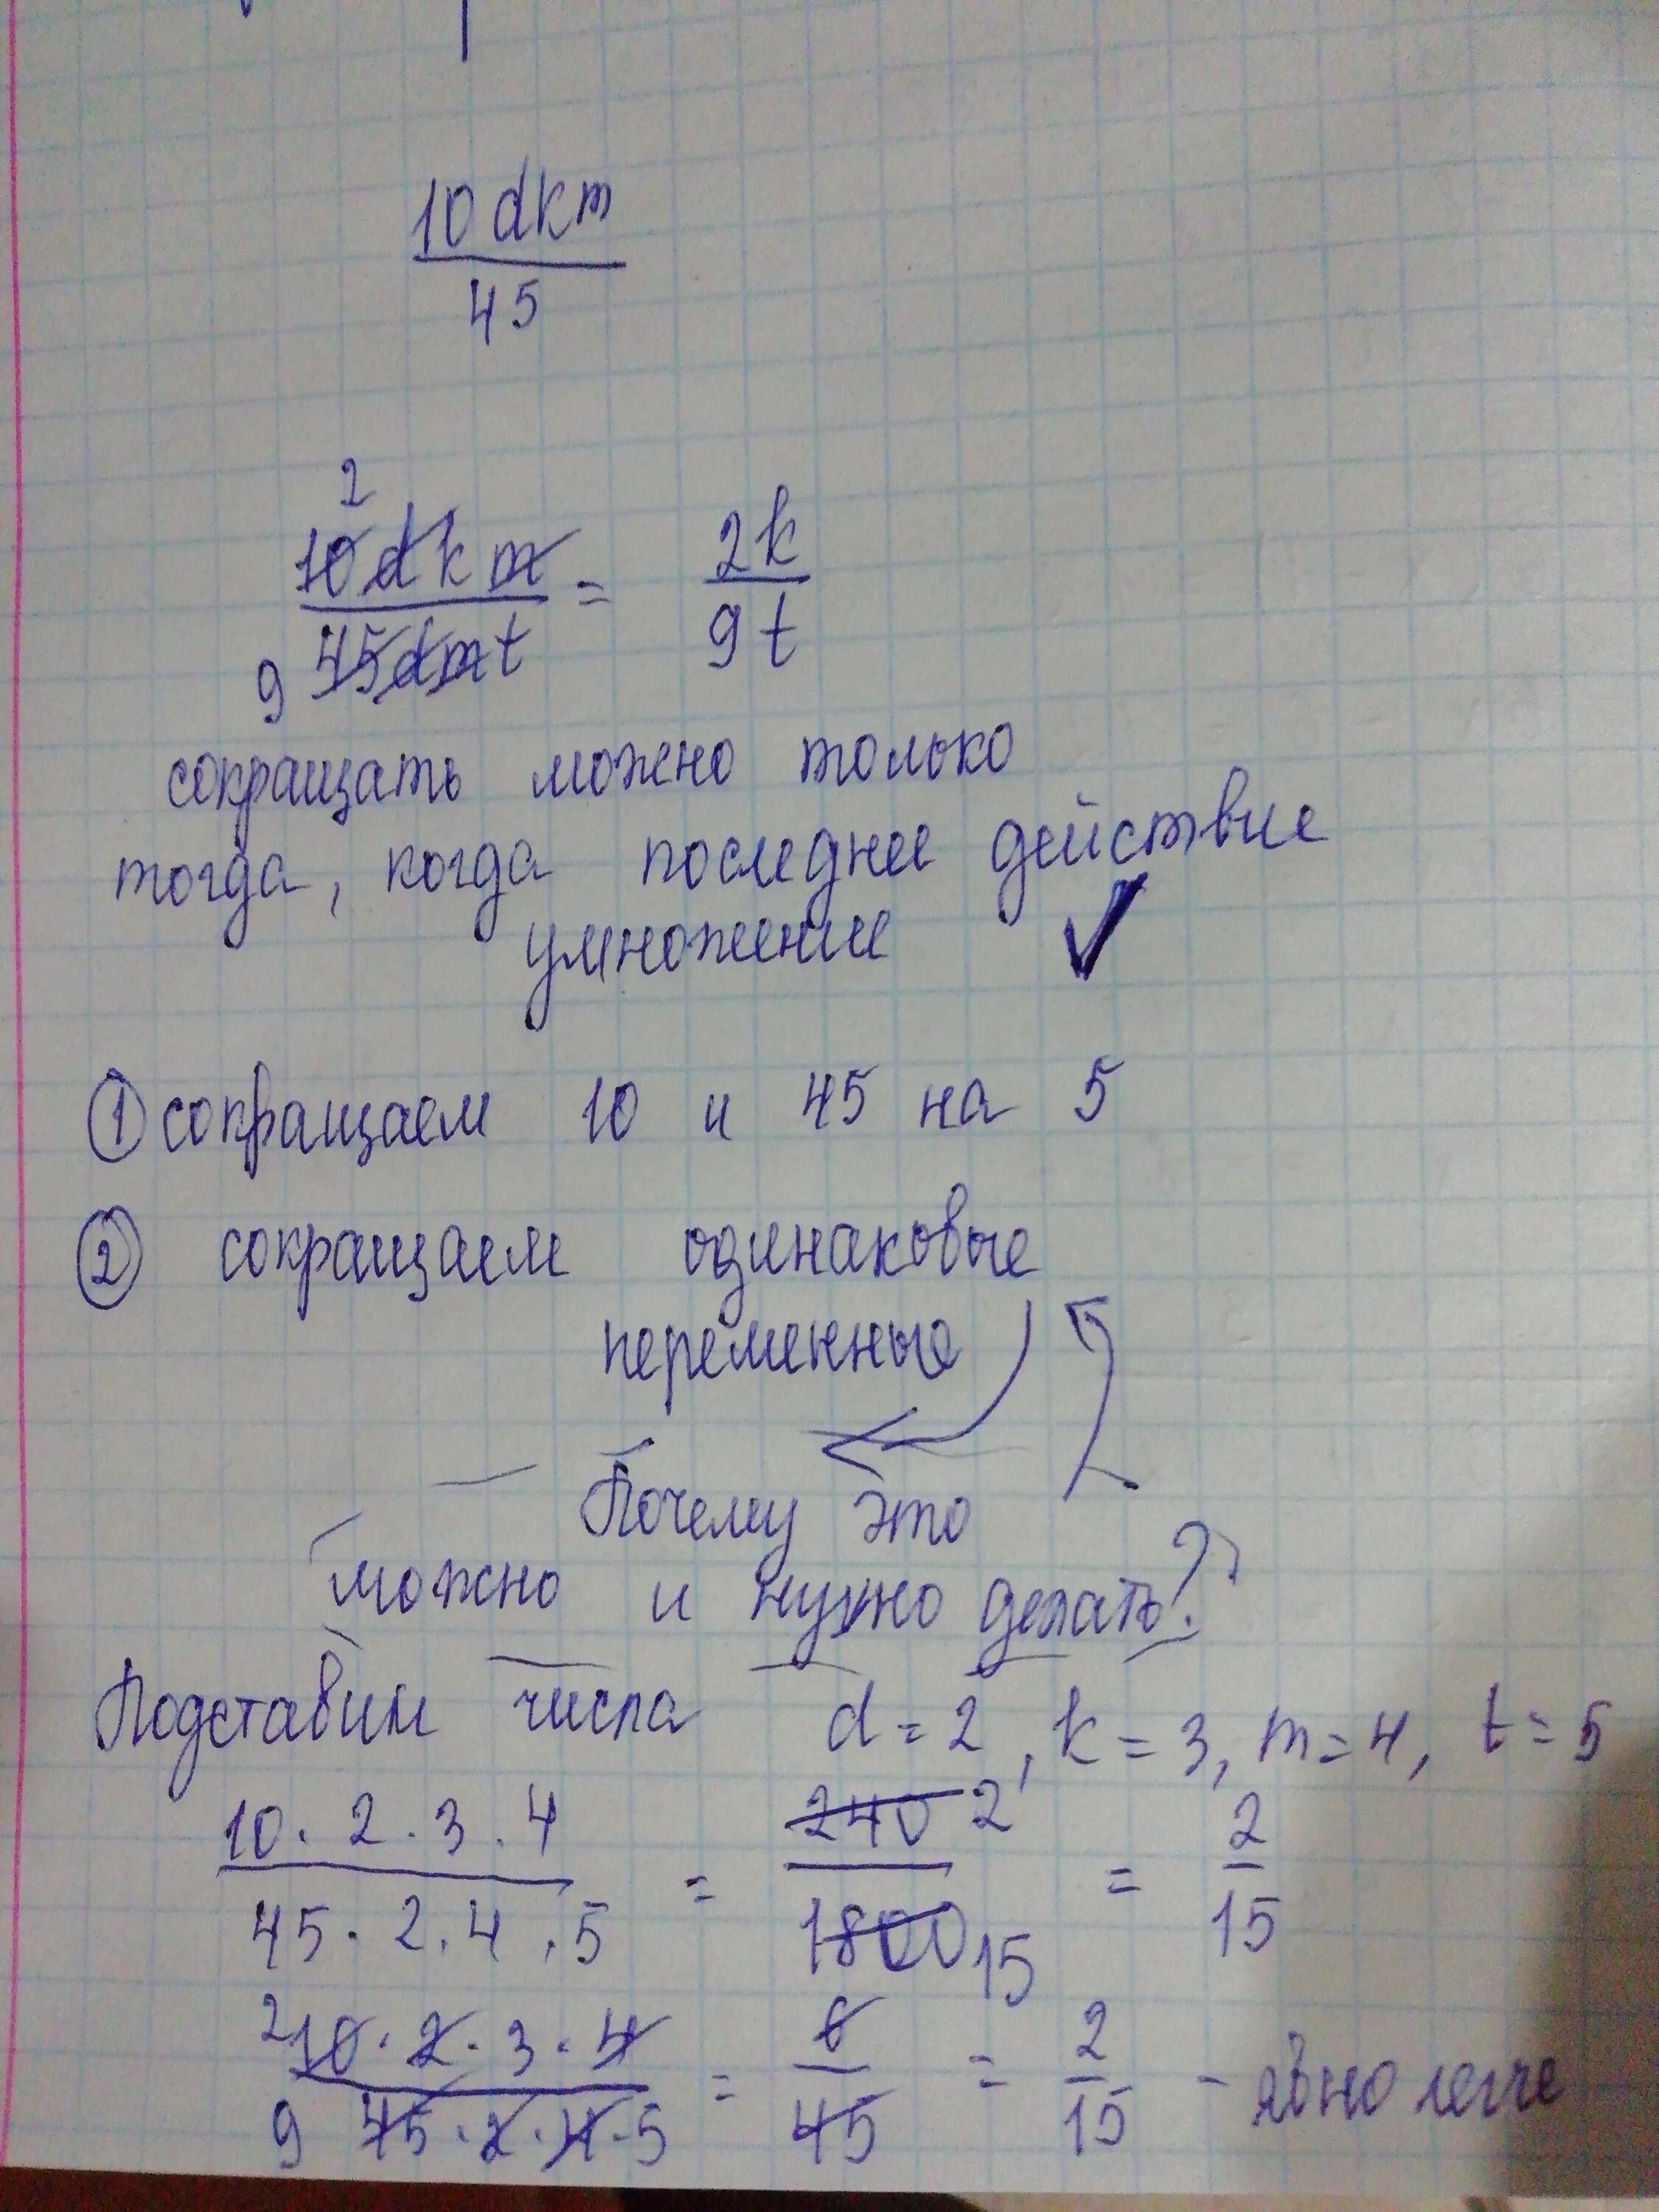 10dkm
45
2
10dkm = 2k
9 45dmt 9t
сокращать можно только
тогда, когда последнее действие
умножение ✓
① сокращаем 10 и 45 на 5
② сокращаем одинаковые
переменные
Почему это
можно и нужно делать?
Подставим числа d=2, k=3, m=4, t=5
10·2·3·4 = 240 2 = 2
45·2·4·5 1800 15 15
2 10·2·3·4 = 6 = 2 - явно легче
9 45·2·4·5 45 15